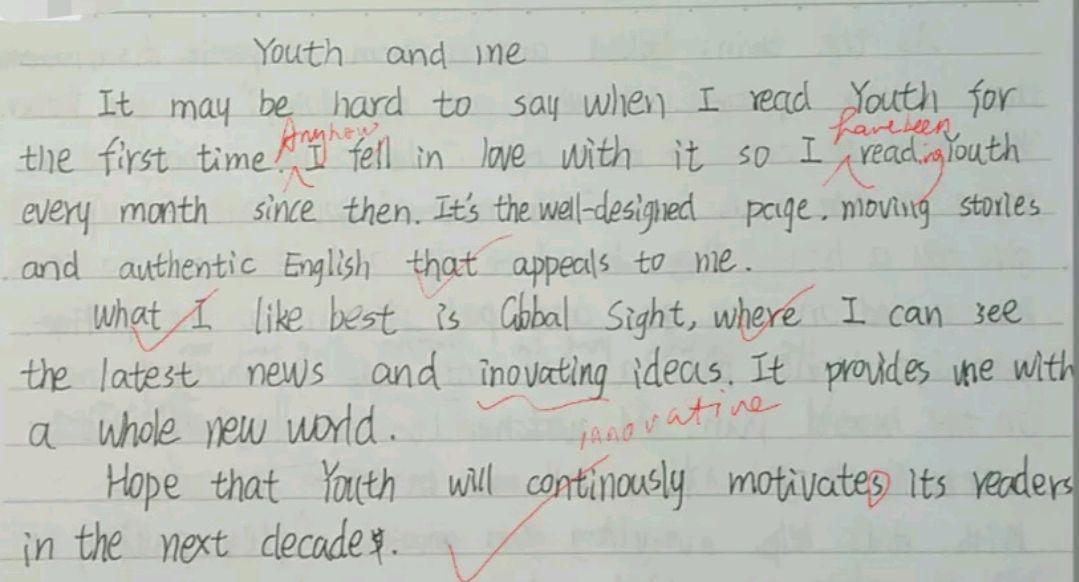 Youth and me
It may be hard to say when I read Youth for
Anyhow have been
the first time. I fell in love with it so I reading Youth
every month since then. It's the well-designed page, moving stories
and authentic English that appeals to me.
What I like best is Global Sight, where I can see
the latest news and inovating ideas. It provides me with
innovative
a whole new world.
Hope that Youth will continously motivates its readers
in the next decades.